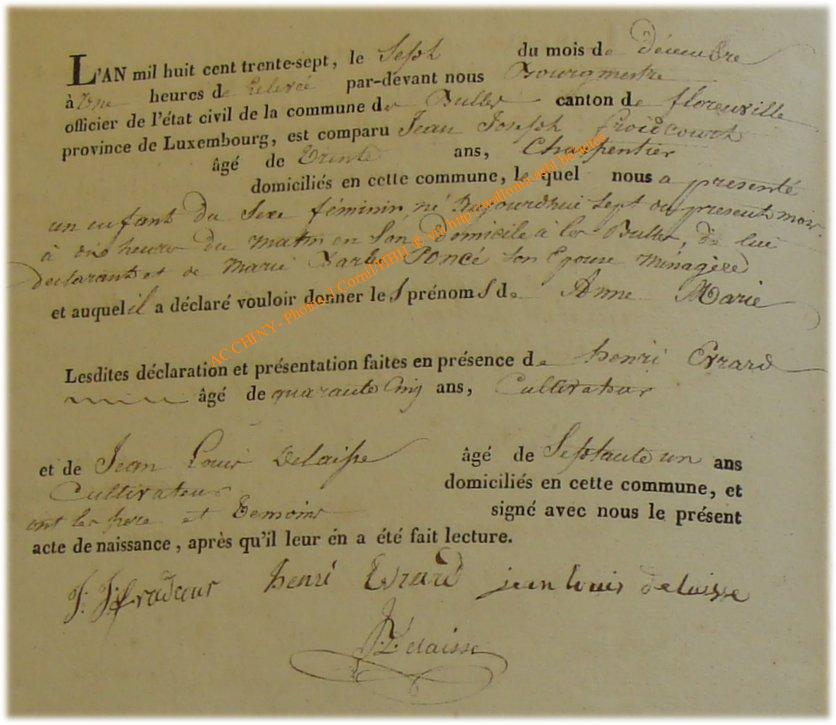 L'AN mil huit cent trente-sept, le Sept du mois de décembre
à onze heures de relevée par-devant nous Bourgmestre
officier de l'état civil de la commune de Bulles canton de florenville
province de Luxembourg, est comparu Jean Joseph froidcourt
âgé de trente ans, Charpentier
domiciliés en cette commune, lequel nous a presenté
un enfant du Sexe féminin né aujourdhui sept du present mois
à onze heures du matin en Son domicile a les Bulles, de lui
declarant et de Marie Barbe Poncé Son Epouse Ménagère
et auquel il a déclaré vouloir donner le S prénom S de Anne Marie
AC CHINY - Photos J.Cornil
Lesdites déclaration et présentation faites en présence de henri Evrard
âgé de quarante Cinq ans, Cultivateur
et de Jean Louis Delaisse âgé de Septante un ans
Cultivateur domiciliés en cette commune, et
ont les pere et temoins signé avec nous le présent
acte de naissance, après qu'il leur en a été fait lecture.
henri Evrard jean louis delaisse
Delaisse